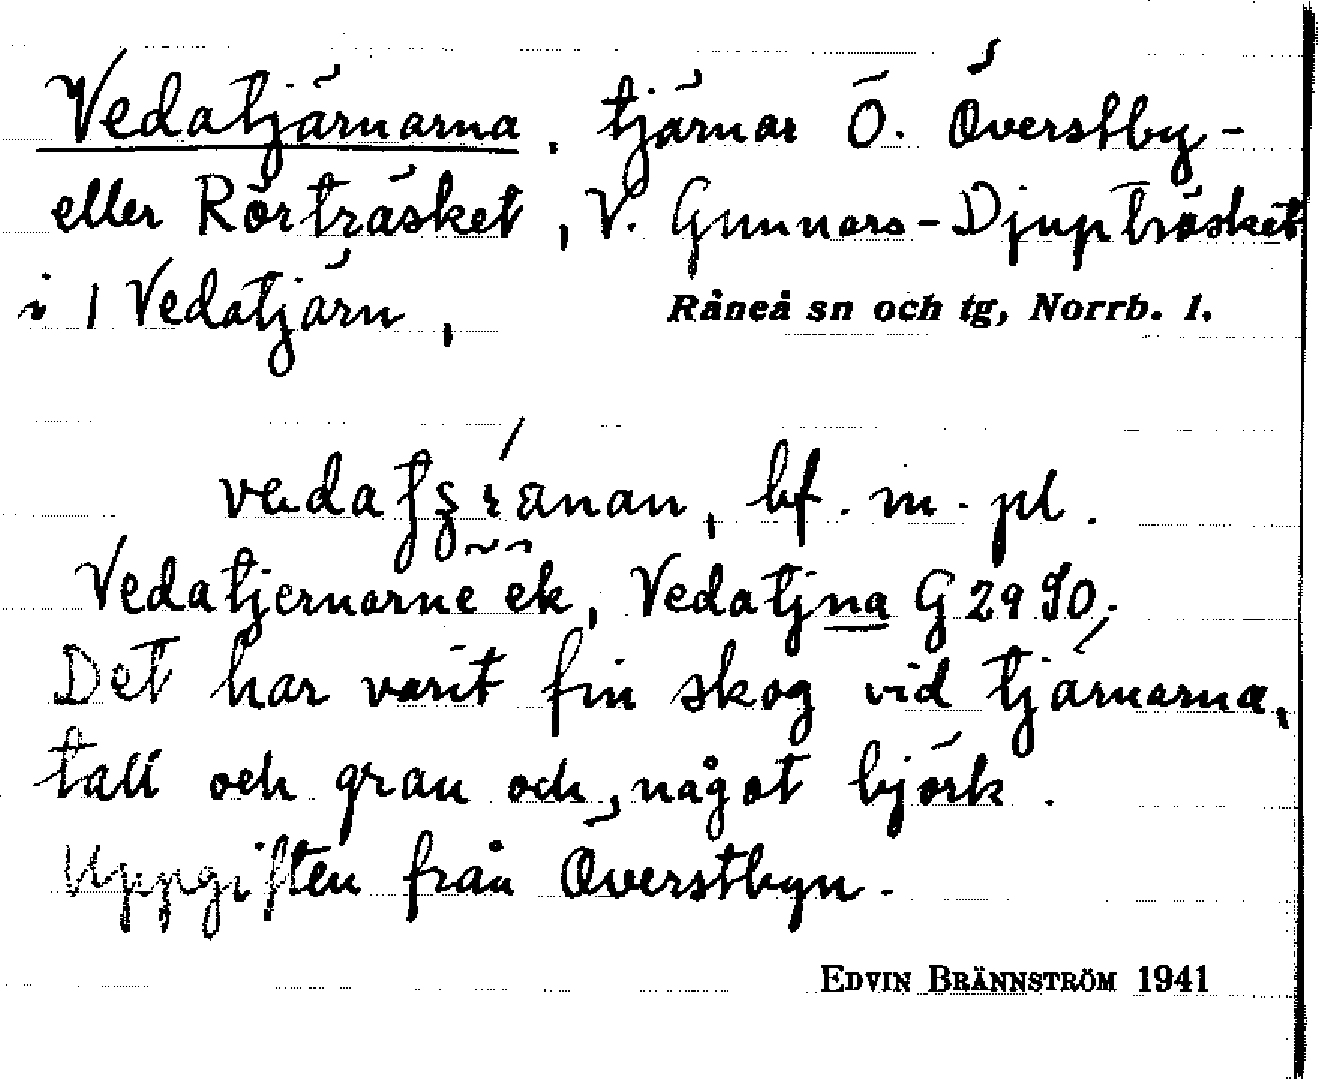 Vedatjärnarna, tjärnar Ö. Överstby-
eller Rörträsket, V. Gunnars-Djupträsket
i 1 Vedatjärn,
Råneå sn och tg, Norrb. l.
bf. m. pl.
Vedatjernarne ek, Vedatjna G 29 SO.
Det har varit fin skog vid tjärnarna,
tall och gran och, något björk.
Uppgiften från Överstbyn.
EDVIN BRÄNNSTRÖM 1941